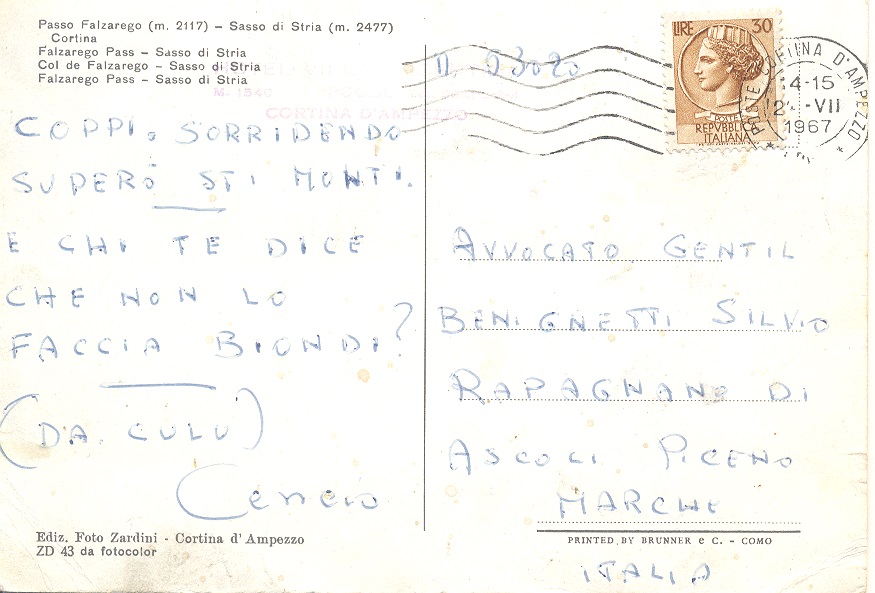 Passo Falzarego (m. 2117) – Sasso di Stria (m. 2477)
Cortina
Falzarego Pass – Sasso di Stria
Col de Falzarego – Sasso di Stria
Falzarego Pass – Sasso di Stria
M. 1540
CORTINA D'AMPEZZO
COPPI, SORRIDENDO
SUPERÒ STI MONTI.
E CHI TE DICE
CHE NON LO
FACCIA BIONDI?
(DA CULU)
Cencio
Ediz. Foto Zardini - Cortina d'Ampezzo
ZD 43 da fotocolor
LIRE 30
POSTE
REPVBBLICA
ITALIANA
POSTE CORTINA D'AMPEZZO
14-15
-VII
1967
AVVOCATO GENTIL
BENIGNETTI SILVIO
RAPAGNANO DI
ASCOLI PICENO
MARCHE
PRINTED BY BRUNNER e C. – COMO
ITALIA